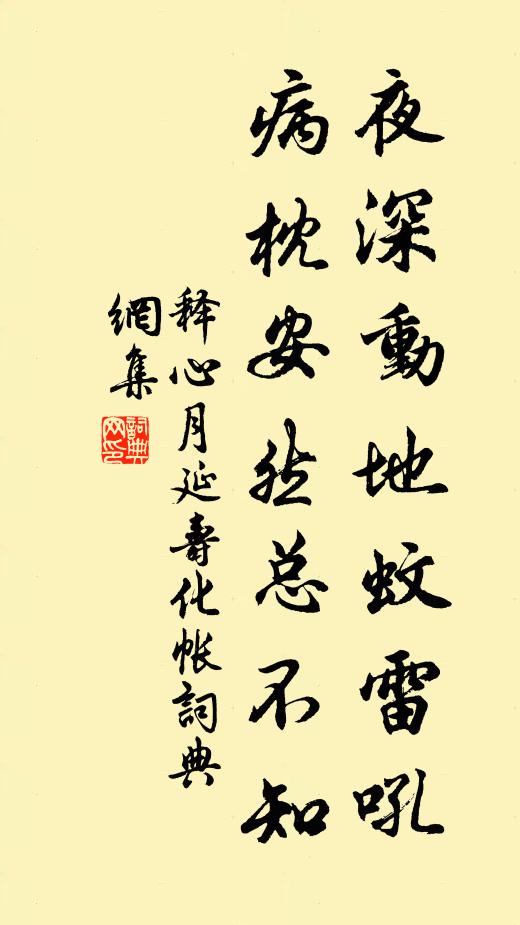 夜深動地蚊雷吼
病枕安然总不知
释心月延壽化帐詞典
網集
詞典
网印